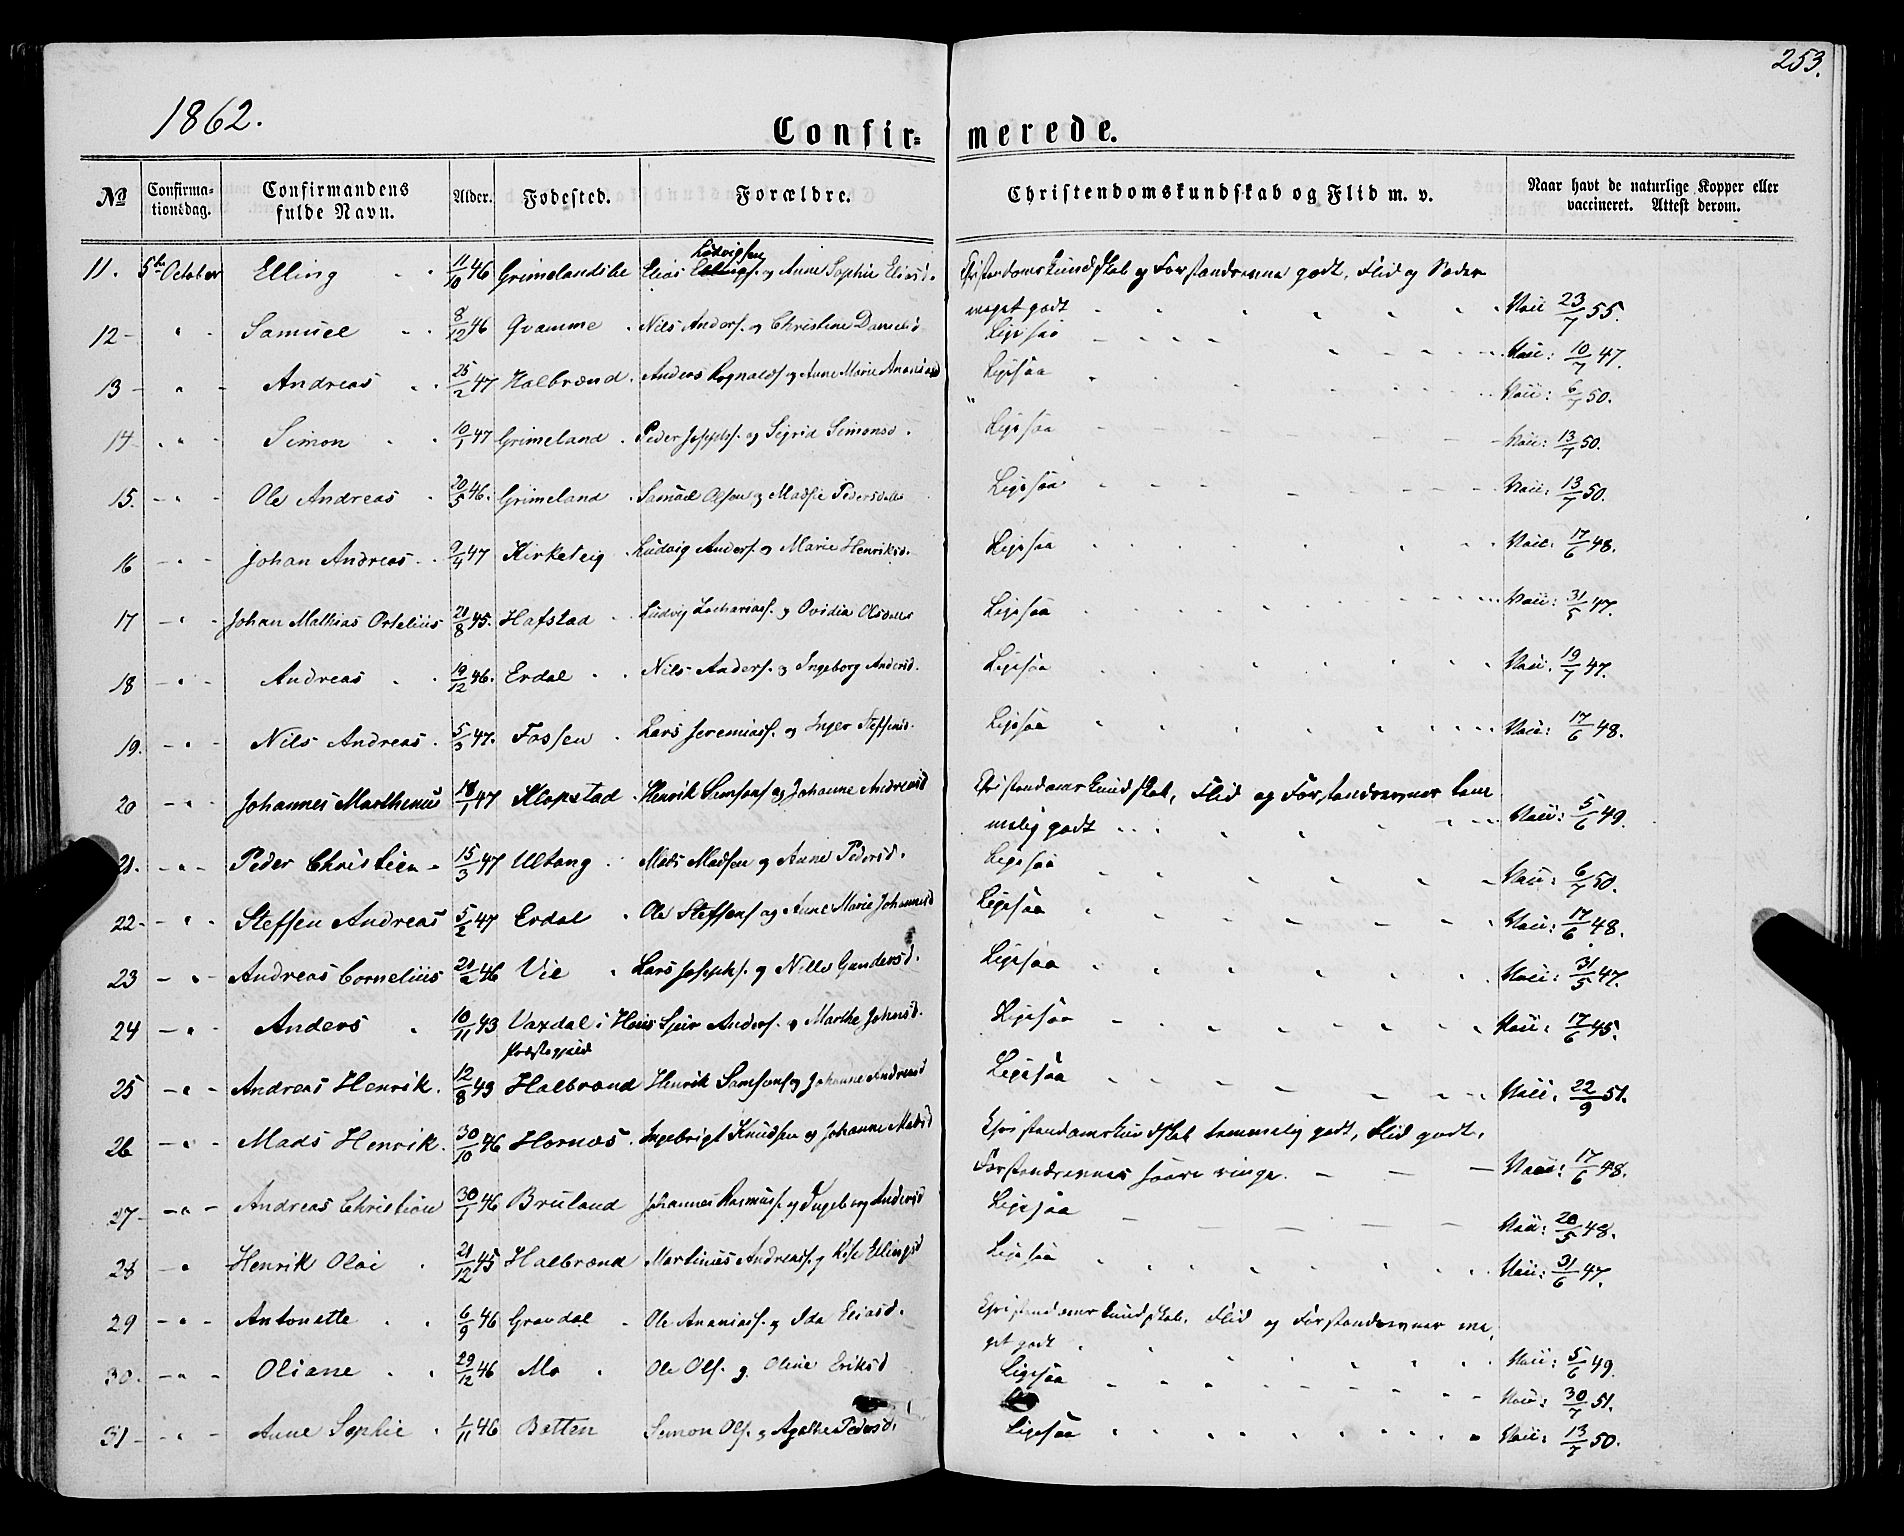 253.
1862.
Confir= merede.
No Confirmationsdag. Confirmandens fulde Navn. Alder. Fodested. Forældre. Christendomskundskab og Flid m. v. Naar havt de naturlige Kopper eller vaccineret. Attest derom.
Ludvigsen
11. 5te October Elling 11/10 46 Grimelandslie Elias og Anne Sophie Eliasd. Christendomskundskab og Forstandsevne godt, Flid og Sæder
meget godt Vacc 23/7 55.
12 - " - Samuel 8/12 46 Qvamme Nils Anders. og Christine Danielsd Ligesaa Vacc: 10/7 47.
13 - " - Andreas 25/2 47 Halbrænd. Anders Rognalds. og Anne Marie Ananiasd Ligesaa Vacc: 6/7 50.
14 - " - Simon 10/1 47 Grimeland Peder Josephs. og Sigrid Simonsd. Ligesaa Vacc: 13/7 50.
15. - " - Ole Andreas 20/5 46. Grimeland Samuel Olsen og Madsie Pedersdatter Ligesaa Vacc: 13/7 50.
16 - " - Johan Andreas 9/4 47 Kirketeig Ludvig Anders. og Marie Henriksd. Ligesaa Vacc: 17/6 48.
17 - " - Johan Mathias Ortelius 21/8 45. Hafstad Ludvig Zachariass. og Ovidia Olsdatter Ligesaa Vacc: 31/5 47.
18 - " - Andreas 19/12 46. Erdal Nils Anders. og Ingeborg Andersd. Ligesaa Vacc. 19/7 47.
19. - " - Nils Andreas 5/3 47. Fossen Lars Jeremiass. og Inger Steffensd. Ligesaa Vacc: 17/6 48.
20 - " - Johannes Marthenus 18/1 47 Klopstad Henrik Samsons. og Johanne Andreasd Christendomskundskab, Flid og Forstandsevner tem
melig godt Vacc: 5/6 49.
21. - " - Peder Christian 15/3 47 Ultang Mads Madsen og Anne Pedersd. Ligesaa Vacc: 6/7 50.
22 - " - Steffen Andreas 5/2 47 Erdal Ole Steffens. og Anne Marie Johannesd Ligesaa Vacc: 17/6 48.
23 - " - Andreas Cornelius 21/2 46 Vie Lars Josephs. og Nille Gundersd. Ligesaa Vacc: 31/5 47.
24 - " - Anders 10/11 43 Vaxdal i Hous Sjur Anders. og Marthe Johnsd. Ligesaa Vacc: 17/6 45.
Præstegjeld
25 - " - Andreas Henrik. 12/8 43 Halbrænd Henrik Samsons. og Johanne Andreasd Ligesaa Vacc. 22/9 51.
26 - " - Mads Henrik. 30/10 46 Hornæs. Ingebrigt Knudsen og Johanne Madsd Christendomskundskab temmelig godt, Flid godt,
Forstandsevnes saare ringe. Vacc: 17/6 48.
27 - " - Andreas Christian 30/1 46 Bruland Johannes Rasmuss. og Ingeborg Andersd Ligesaa Vacc: 20/5 48.
28 - " Henrik Olai 21/12 45 Halbrænd Martinus Andreass. og Ellingsd Ligesaa Vacc: 31/6 47.
29 - " - Antonette 6/9 46 Gravdal Ole Ananiass. og Ida Eliasd. Christendomskundskab, Flid og Forstandsevner me,
get godt Vacc: 5/6 49.
30. - " - Oliane 29/12 46 Mo Ole Ols. og Oline Eriksd Ligesaa Vacc: 30/7 51.
31 - " - Anne Sophie 1/11 46 Betten Simon Ols. og Agathe Pedersd. Ligesaa Vacc: 13/7 50.